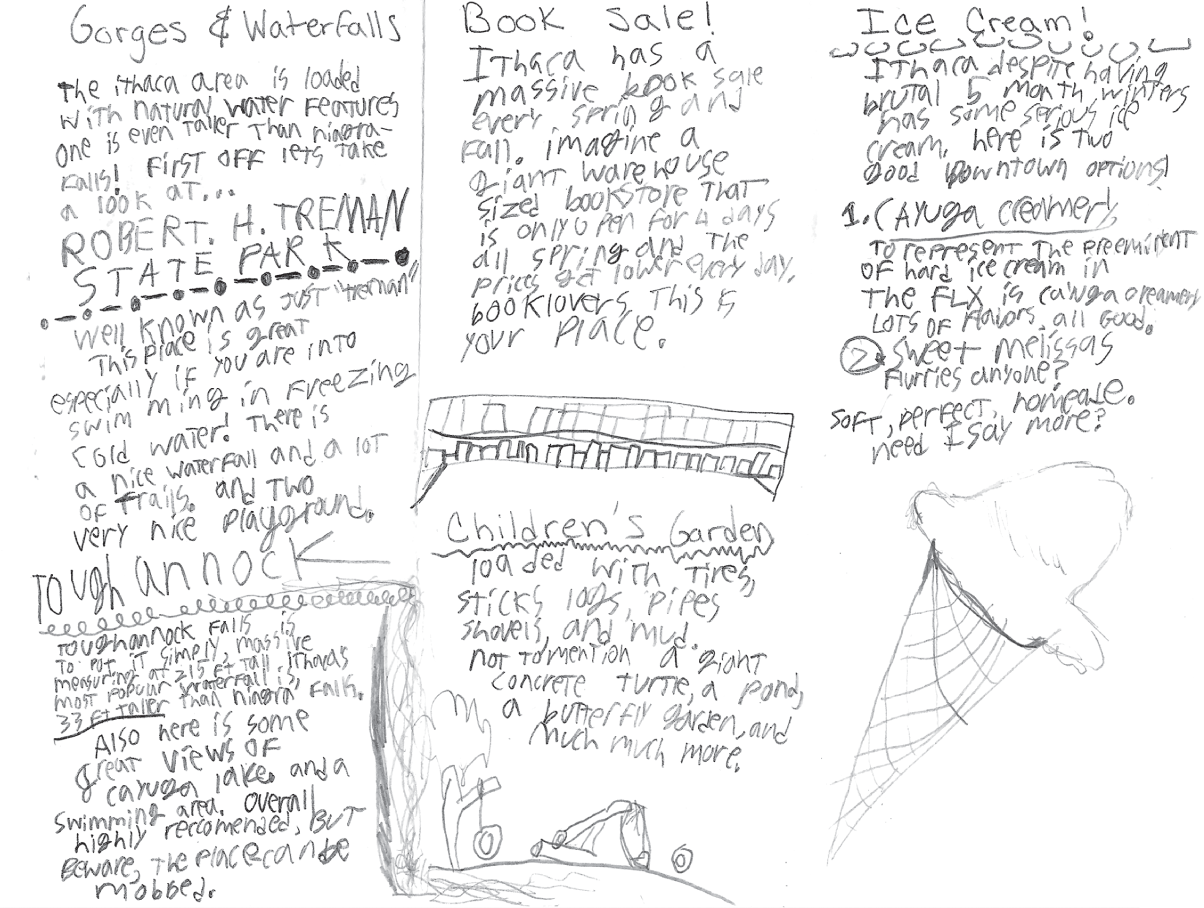 Gorges & Waterfalls
The ithaca area is loaded
with natural water features
one is even taller than niagra-
falls! First off lets take
a look at...
ROBERT. H. TREMAN
STATE PARK
well known as just "treman"
This place is great
especially if you are into
swimming in freezing
cold water! There is
a nice waterfall and a lot
of trails. and two
very nice playground.
Toughannock
Toughannock Falls is
to put it simply, massive
measuring at 215 ft tall, ithacas
most popular waterfall is,
33 ft taller than niagra falls.
Also here is some
great views of
cayuga lake. and a
swimming area. overall
highly reccomended, But
Beware, the place can be
mobbed.
Book Sale!
Ithaca has a
massive book sale
every spring and
fall. imagine a
giant warehouse
sized bookstore that
is only open for 4 days
all spring and the
prices get lower every day.
booklovers, this is
your place.
Children's Garden
loaded with tires,
sticks logs, pipes
shovels, and mud.
not to mention a giant
concrete turtle, a pond,
a butterfly garden, and
much much more.
Ice Cream!
Ithaca despite having
brutal 5 month winters
has some serious ice
cream, here is two
good downtown options!
1. Cayuga creamery
To represent the preeminent
of hard ice cream in
the FLX is cayuga creamery
LOTS OF flavors, all good.
2. Sweet melissas
flurries anyone?
soft, perfect, homemade.
need I say more?